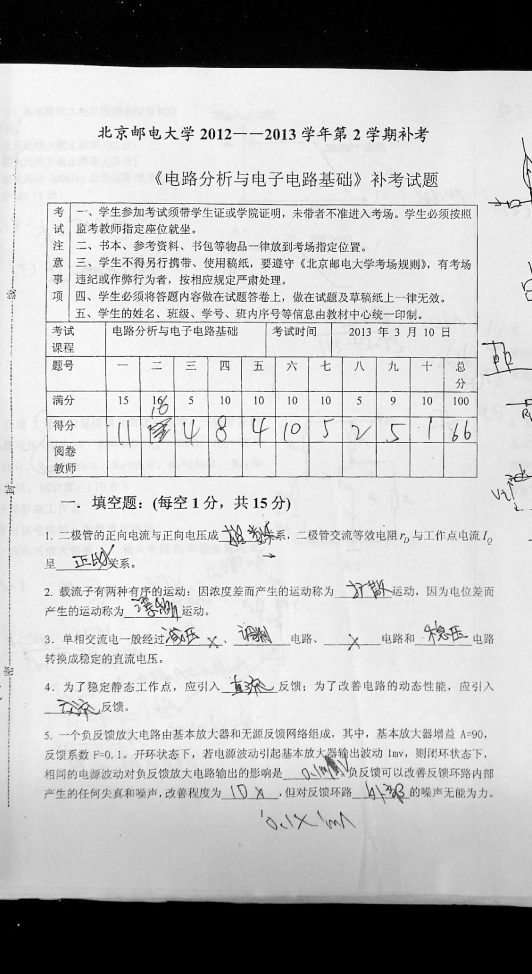 北京邮电大学 2012——2013 学年第 2 学期补考
《电路分析与电子电路基础》补考试题
考试注意事项
一、学生参加考试须带学生证或学院证明，未带者不准进入考场。学生必须按照
监考教师指定座位就坐。
二、书本、参考资料、书包等物品一律放到考场指定位置。
三、学生不得另行携带、使用稿纸，要遵守《北京邮电大学考场规则》，有考场
违纪或作弊行为者，按相应规定严肃处理。
四、学生必须将答题内容做在试题答卷上，做在试题及草稿纸上一律无效。
五、学生的姓名、班级、学号、班内序号等信息由教材中心统一印制。
考试课程 电路分析与电子电路基础 考试时间 2013 年 3 月 10 日
题号 一 二 三 四 五 六 七 八 九 十 总分
满分 15 16 5 10 10 10 10 5 9 10 100
得分 11 16 4 8 4 10 5 2 5 1 66
阅卷教师
一．填空题：(每空 1 分，共 15 分)
1. 二极管的正向电流与正向电压成 指数 关系，二极管交流等效电阻 rD 与工作点电流 IQ
呈 正比 关系。
2. 载流子有两种有序的运动：因浓度差而产生的运动称为 扩散 运动，因为电位差而
产生的运动称为 漂移 运动。
3. 单相交流电一般经过 减压 、 调制 电路、 电路和 稳压 电路
转换成稳定的直流电压。
4. 为了稳定静态工作点，应引入 直流 反馈；为了改善电路的动态性能，应引入
交流 反馈。
5. 一个负反馈放大电路由基本放大器和无源反馈网络组成，其中，基本放大器增益 A=90，
反馈系数 F=0.1。开环状态下，若电源波动引起基本放大器输出波动 1mv，则闭环状态下，
相同的电源波动对负反馈放大电路输出的影响是 0.1mV 负反馈可以改善反馈环路内部
产生的任何失真和噪声,改善程度为 10 ,但对反馈环路 外部 的噪声无能为力。
0.1×1mV